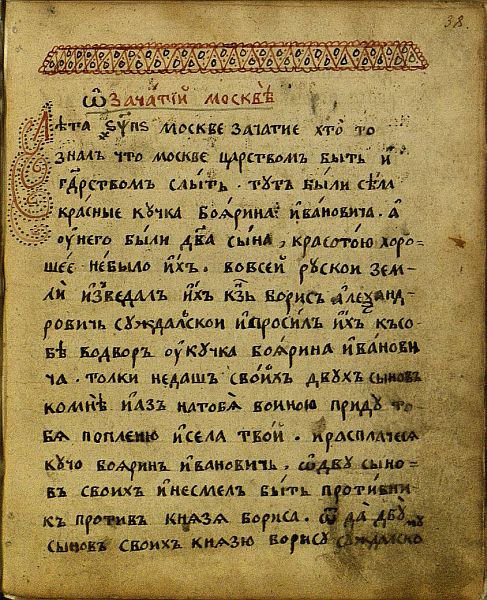 38.
Ѿ ЗАЧАТІЙ МОСКВѢ
Лѣта ҂ѕ҃ѱпѕ Москве зачатие хто то
зналъ что москве царствомъ быть и
гдⷭ҇рствомъ слыть. тутъ были сѣла
красные кучка боярина ивановича. а
оу него были два сына, красотою хоро-
шее небыло ихъ. во всей руской зем-
ли изведалъ ихъ кн҃зь борисъ алеѯанд-
ровичь суждалскои и просилъ ихъ къ со-
бѣ во дворъ оу кучка боярина иванови
ча. толки недашъ своихъ двухъ сыновъ
ко мнѣ и азъ на тобя воиною приду то-
бя попленю и села твои. и расплачеся
кучо бояринъ ивановичь, ѿ дву сыно-
въ своихъ и несмелъ быть противни-
къ противъ князя бориса. ѿда двꙋ
сыновъ своихъ князю борису суждалско
му